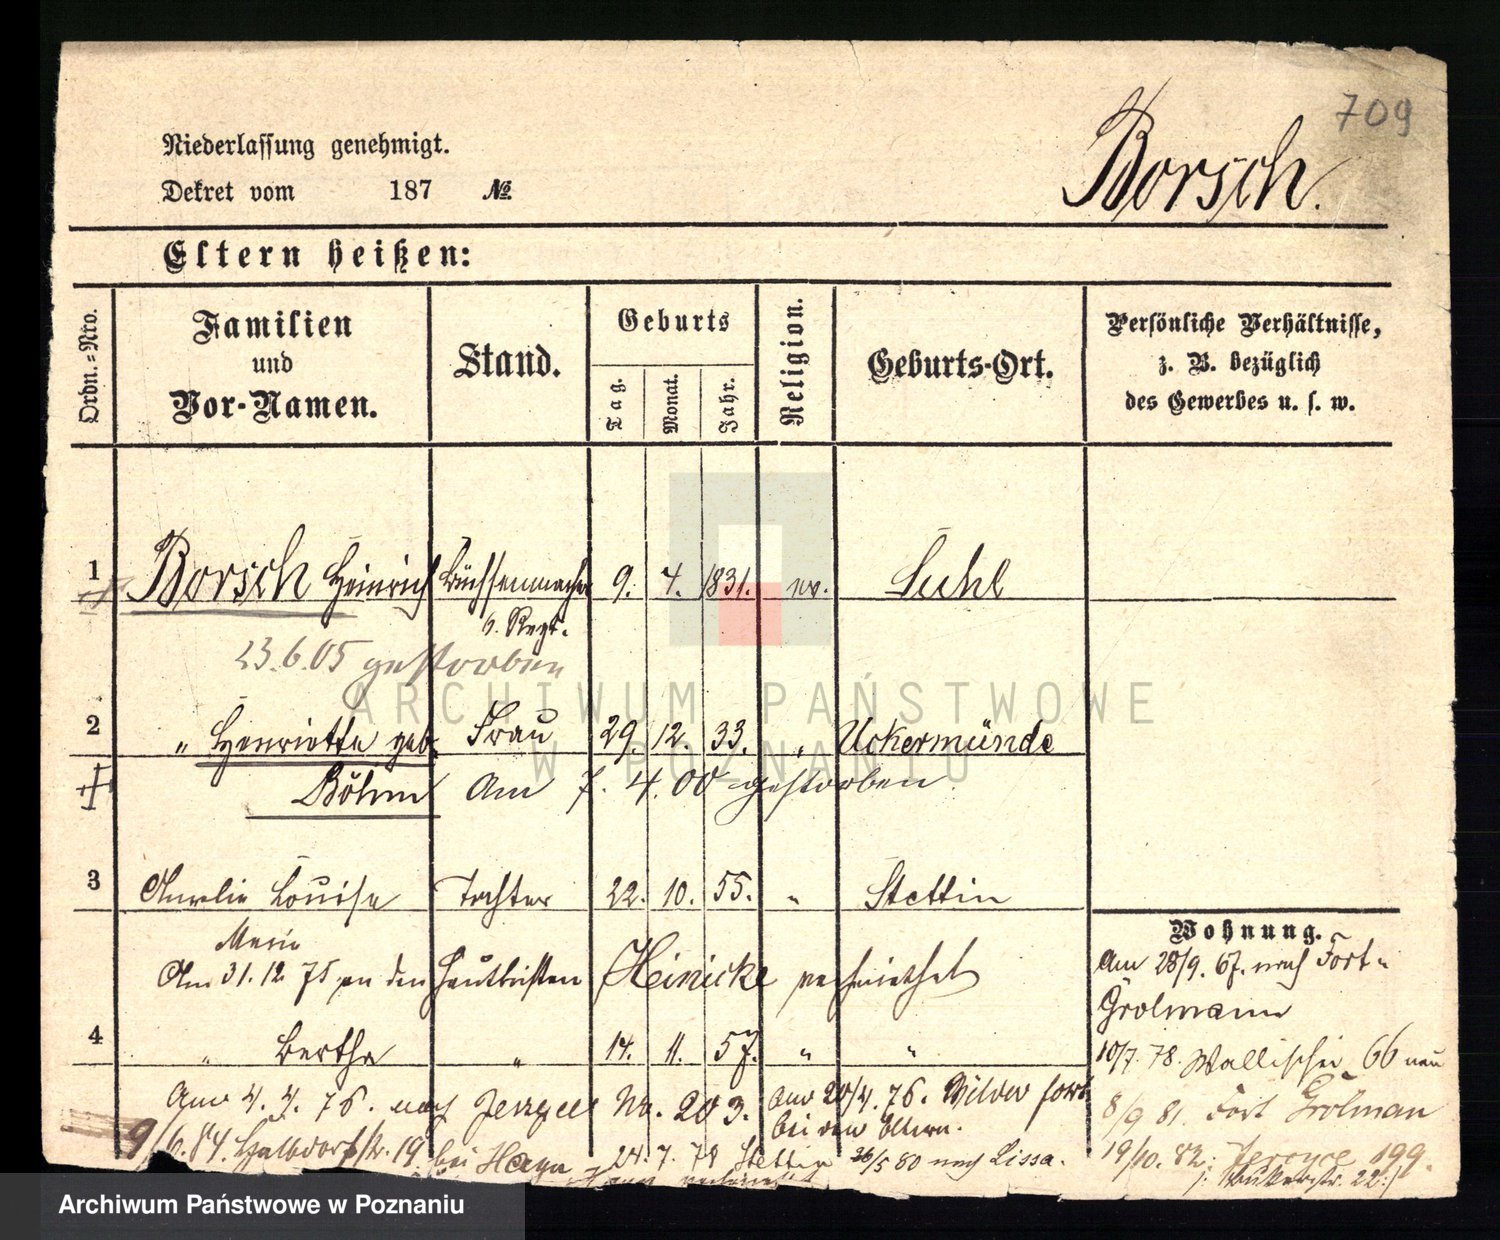 709
Borsch.
Niederlassung genehmigt.
Dekret vom 187 №
Eltern heißen:
Ordn.=Nro.
Familien und Vor-Namen.
Stand.
Geburts
Tag. Monat. Jahr.
Religion.
Geburts-Ort.
Persönliche Verhältnisse,
z. B. bezüglich
des Gewerbes u. s. w.
1 Borsch Heinrich Büchsenmacher 9. 4. 1831. ev. Suhl
6. Regt.
23.6.05 gestorben
2 " Henriette geb. Frau 29. 12. 33. " Uckermünde
Böhm am 7. 4. 00 gestorben
3 Amelie Louise Tochter 22. 10. 55. " Stettin
Am 31.12 75 an den Hautboisten Heinicke verheirathet
4 " Bertha " 14. 11. 57. " "
Am 4. 4. 76. nach Jerzyce No. 203. Am 20/4. 76. Wilder fort
bei den Eltern.
9/6.84. Halbdorfstr. 19 bei 24. 7. 79 Stettin 26/5 80 nach Lissa.
Wohnung.
Am 28/9. 67. nach Fort
Grolmann
10/7. 78. Wallischei 66 neu
8/9 81. Fort Grolman
19/10. 82. Jerzyce 199.
Bukerstr. 22
ARCHIWUM PAŃSTWOWE
W POZNANIU
Archiwum Państwowe w Poznaniu